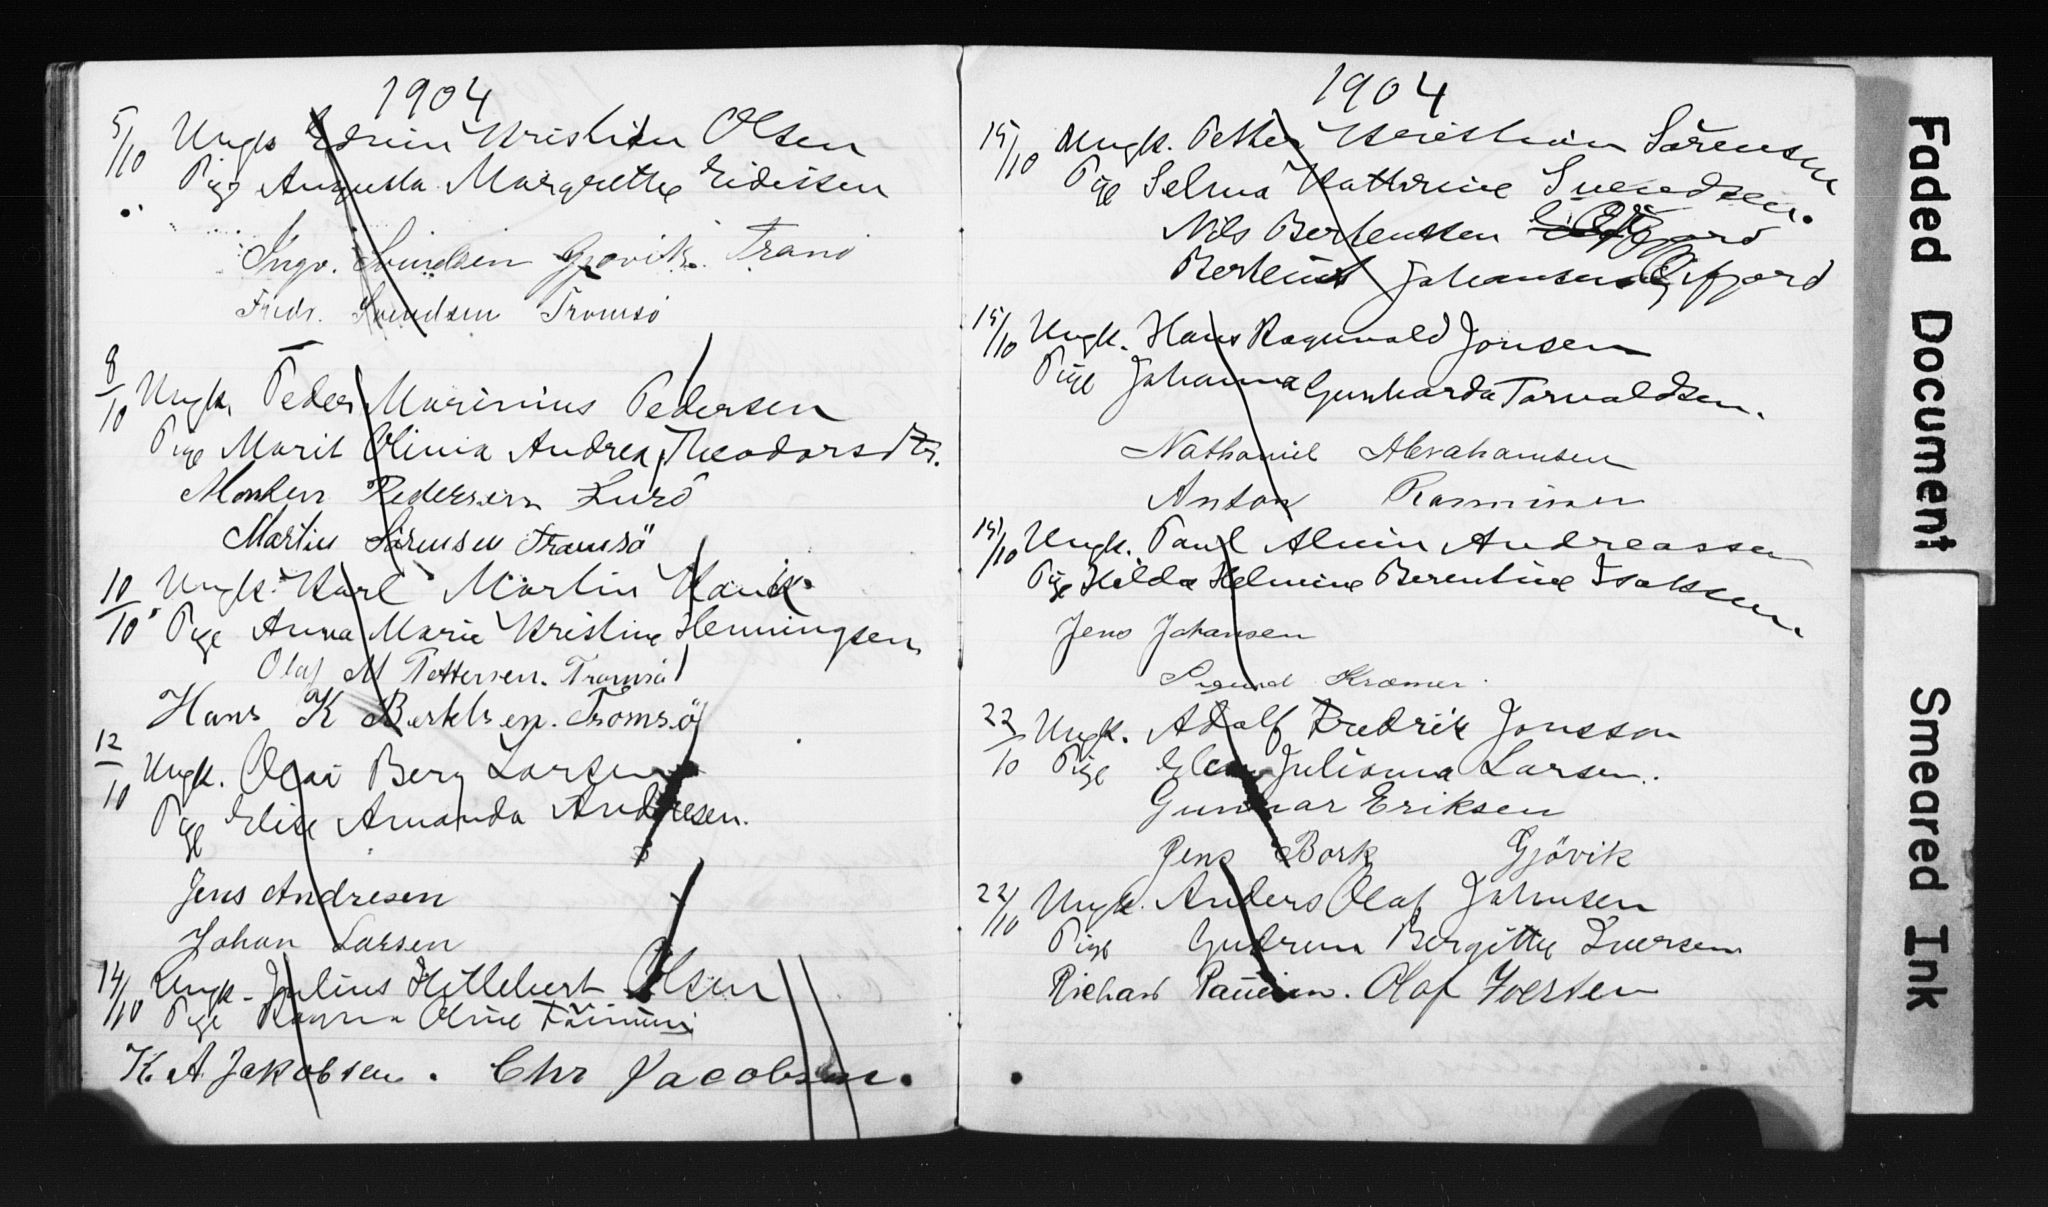 1904
5/10 Ungk Edvin Kristian Olsen
Pige Augusta Margrethe Eidissen
Ingv. Svendsen Gjøvik. Tranö
Fredr. Svendsen Tromsö
8/10 Ungk. Peder Marinius Pedersen
Pige Marit Olivia Andrea Theodorsdtr.
Morten Pedersen Lurö
Martin Sørensen Tromsö
10/10 Ungk. Karl Martin Hank.
Pige Anna Marie Kristine Henningsen
Olaf M Pettersen. Tromsö
Hans K Bertelsen. Tromsö
12/10 Ungk. Olai Berg Larsen
Pige Elise Amanda Andresen.
Jens Andresen
Johan Larsen
14/10 Ungk. Julius Hillebert Olsen
Pige Oline
K. A Jakobsen. Chr Jacobsen.
1904
15/10 Ungk. Petter Kristian Sörensen
Pige Selma Kathrine Svendsen.
Nils Berhentsen
Johansen Gifjord
15/10 Ungk. Hans Ragnvald Jonsen
Pige Johanna Gunharda Torvaldsen.
Nathaniel Abrahamsen
Anton Rasmussen
15/10 Ungk. Paul Alvin Andreassen
Pige Hilda Helmine Berentine Isaksen
Jens Johansen
Sigurd Kræmer.
22/10 Ungk. Adolf Fredrik Jonsson
Pige Julianna Larsen.
Gunnar Eriksen
Jens Bork Gjövik
22/10 Ungk. Anders Olaf Johnsen
Pige Gudrun Bergitte Iversen
Richard Olaf Iversen
Faded Document
Smeared Ink